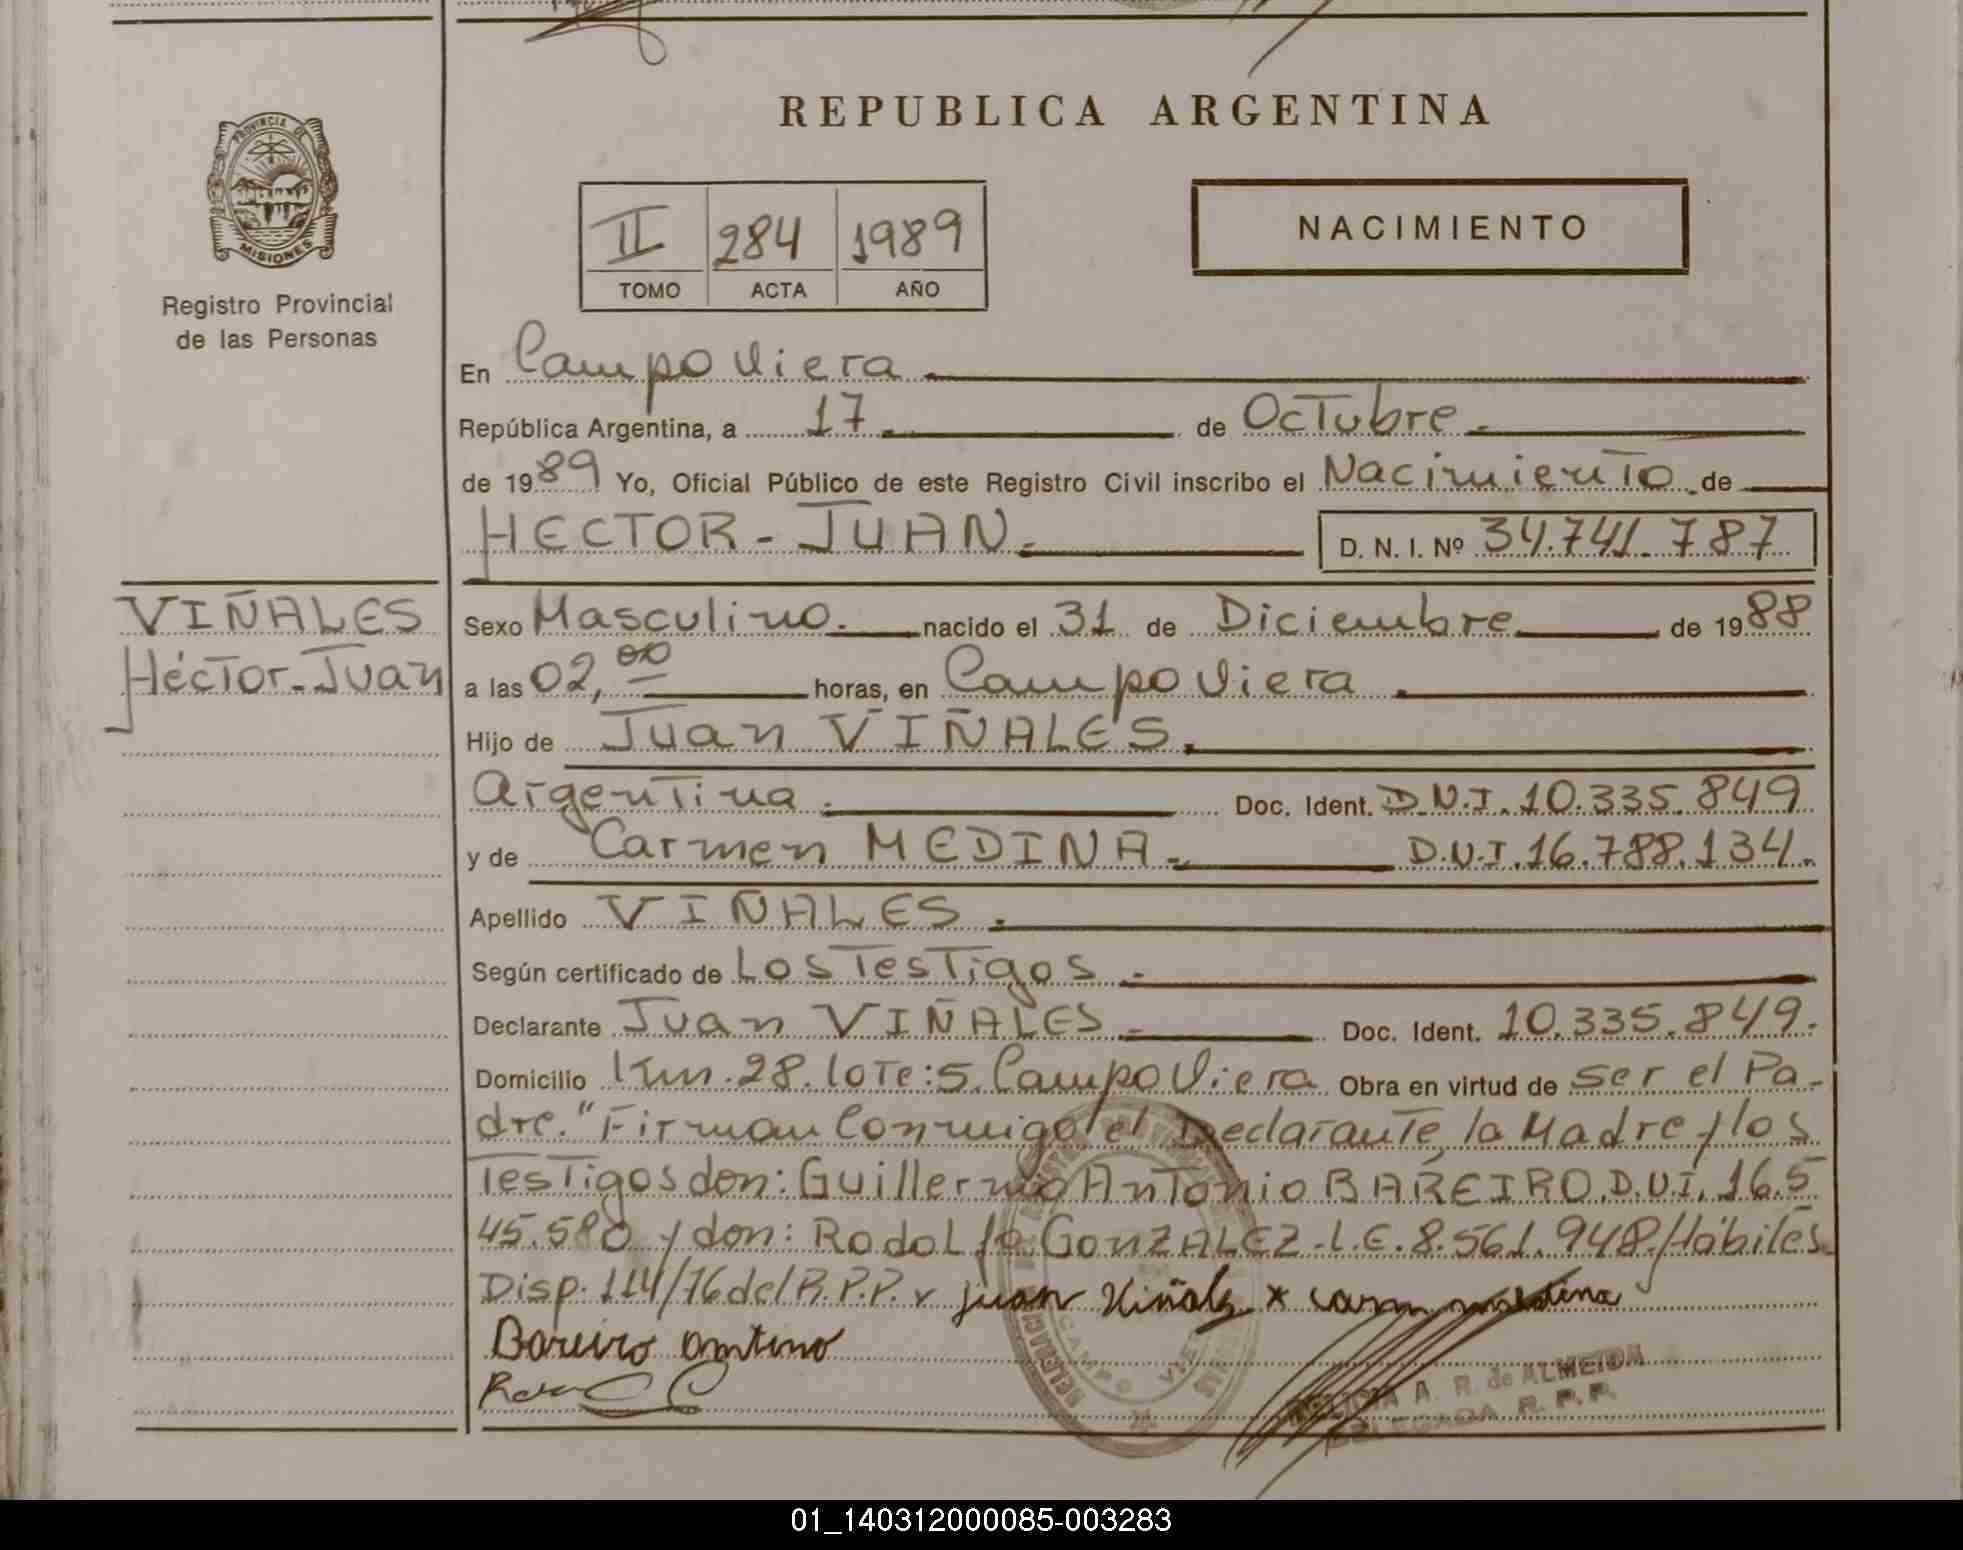 REPUBLICA ARGENTINA
PROVINCIA DE
MISIONES
Registro Provincial
de las Personas
II 284 1989
TOMO ACTA AÑO
NACIMIENTO
En Campo Viera
República Argentina, a 17 de Octubre
de 1989 Yo, Oficial Público de este Registro Civil inscribo el Nacimiento de
HECTOR - JUAN. D. N. I. Nº 34.741.787
VIÑALES
Héctor-Juan
Sexo Masculino. nacido el 31 de Diciembre de 1988
a las 02,00 horas, en Campo Viera
Hijo de Juan VIÑALES.
Argentina. Doc. Ident. D.N.I. 10.335.849
y de Carmen MEDINA - D.N.I. 16.788.134.
Apellido VIÑALES.
Según certificado de Los Testigos -
Declarante Juan VIÑALES - Doc. Ident. 10.335.849.
Domicilio Km. 28. lote: 5. Campo Viera Obra en virtud de ser el Pa-
dre." Firman Conmigo el Declarante, la Madre y los
Testigos don: Guillermo Antonio BAREIRO. D.N.I. 16.5
45.580 y don: Rodolfo GONZALEZ - L.E. 8.561.948. Hábiles
Disp. 114/76 del R.P.P. x juan Viñales x
Bareiro
A. R. de ALMEIDA
DELEGADA R. P. P.
01_140312000085-003283